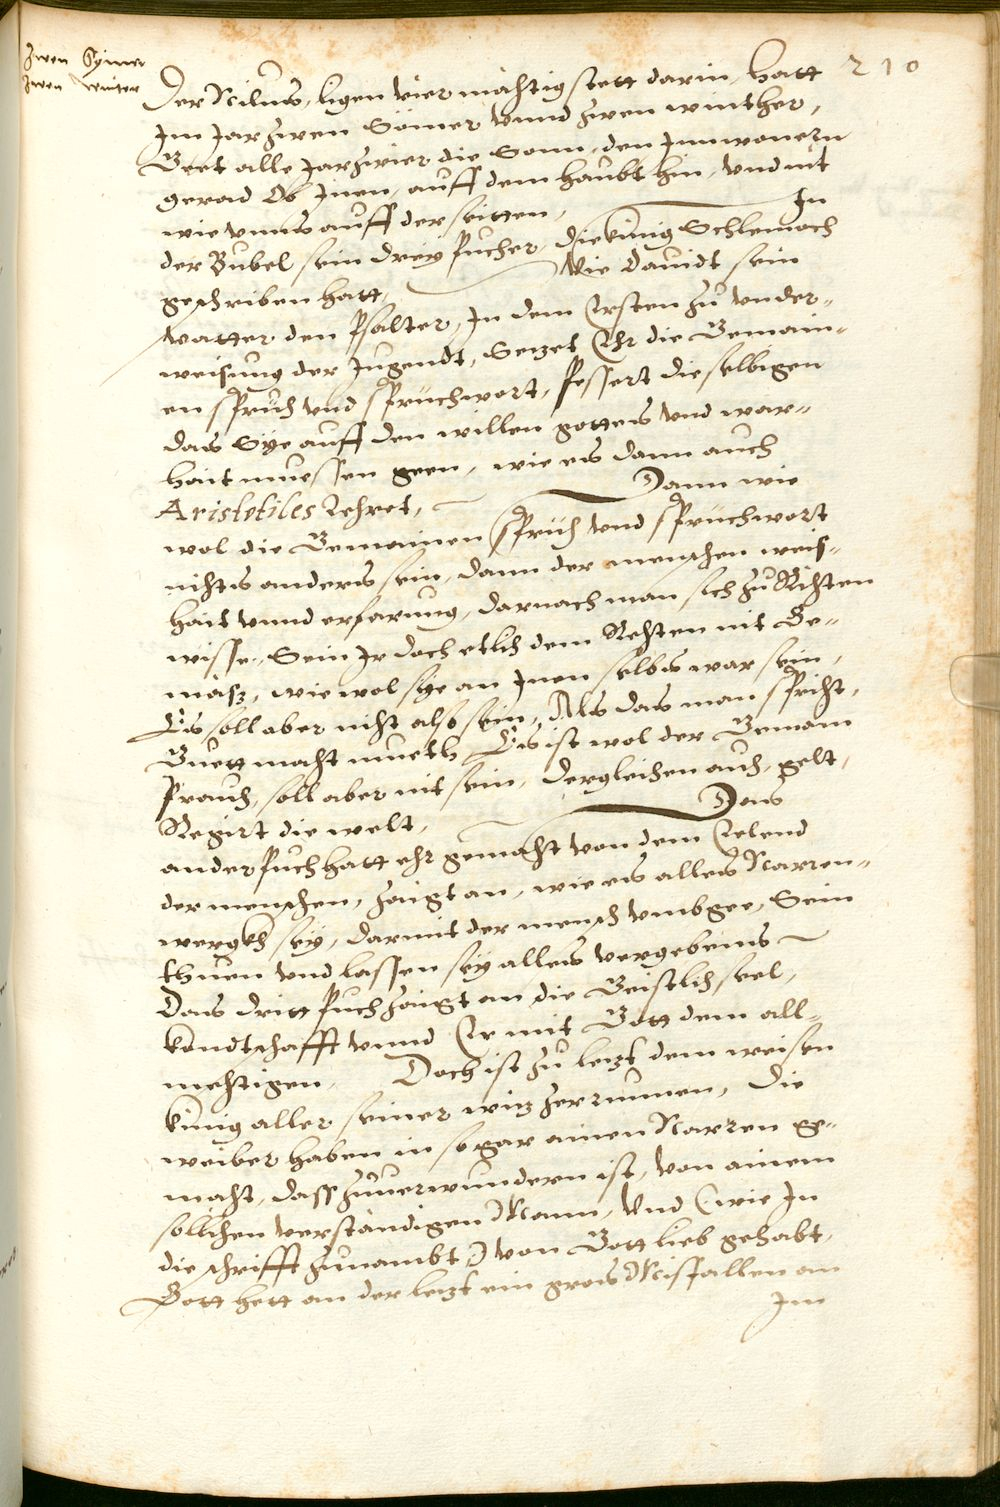 zwen Symer
zwen winter
210
Der Nilus, ligen vier mächtig stett darin, hatt
Im Jar zwen Sömer vnnd zwen winther,
Geet alle Jar zwier die Sonn, den Innwonern
gerad Ob Inen, auff dem haubt hin, vnd nit
wie vnns auff der seitten, In
der Bubel sein drey Pucher, die künig Schlemoch
geschriben hatt, Wie Dauidt sein
vatter den Psalter, In dem Ersten zu vnder-
weisung der Jugendt, Setzet Ehr die Gemain-
en sprüch vnd sprüchwort, pessert dieselbigen
das Sye auff den willen gottes vnd war-
hait muessen geen, wie es dann auch
Aristotiles Lehret, Dann wie
wol die Gemainen sprüch vnd sprüchwort
nichts anders sein, dann der menschen weis-
hait vnnd erfarung, darnach man sich zu Richten
wisse, Sein Ir doch etlich dem Rechten nit Ge-
mäsz, wie wol sye an Inen selbs war sein,
Es soll aber nicht also sein, Als das man spricht,
Guett macht mueth Es ist wol der Gemain
Prauch, soll aber nit sein, dergleichen auch, gelt,
Regirt die welt, Das
ander Puch hatt ehr gemacht von dem Ellend
der menschen, zaigt an, wie es alles Narren-
wergkh sey, darmit der mensch vmbgee, Sein
thuen vnd lassen sey alles vergebenns
Das dritt Puch zaigt an die Geistlich seel,
kondtschafft vnnd Er mit Gott dem all-
mechtigen, Doch ist zu letzt dem weisen
künig aller seiner witz zerrunnen, die
weiber haben in so gar ainen Narren ge-
macht, dass zuuerwundern ist, von ainem
sollichen verständigen Mann, Vnd (wie In
die schrifft zunambt) von Gott lieb gehabt,
Gott hett an der letzt ein gros Misfallen an
Im